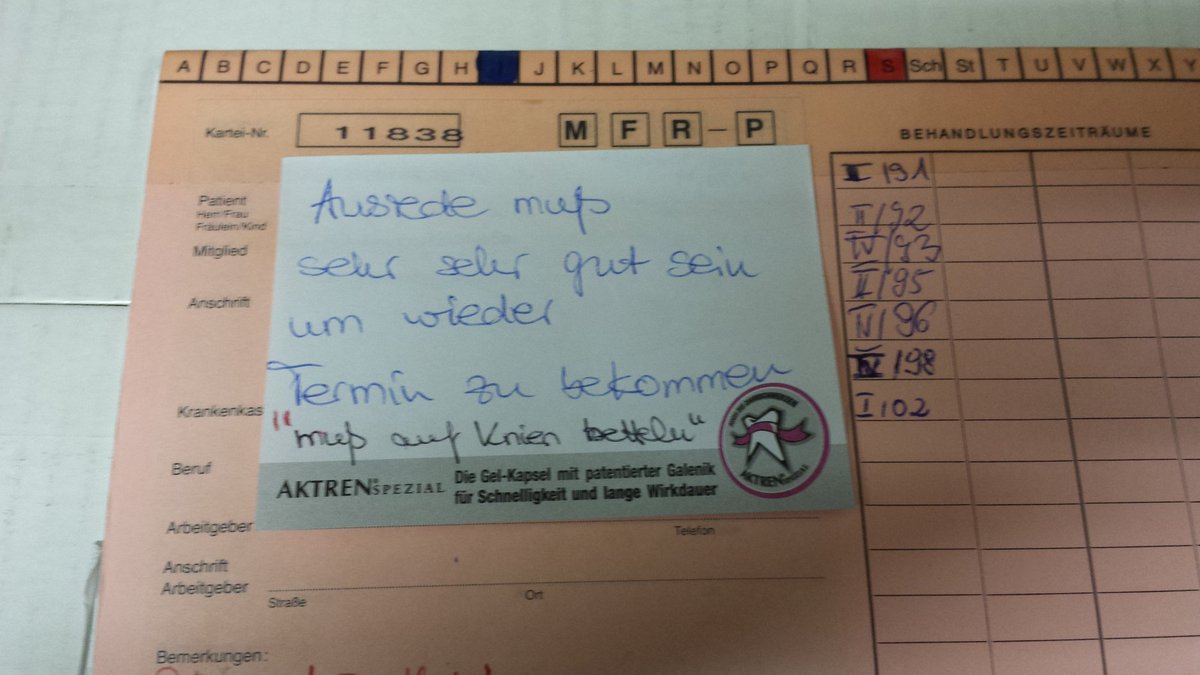 A B C D E F G H I J K L M N O P Q R S Sch St T U V W X Y
Kartei-Nr. 11838 M F R - P
BEHANDLUNGSZEITRÄUME
Patient
Herr/Frau
Fräulein/Kind
Mitglied
Anschrift
Krankenkas
Beruf
Arbeitgeber
Telefon
Anschrift
Arbeitgeber
Straße Ort
Bemerkungen:
Ausrede muß
sehr sehr gut sein
um wieder
Termin zu bekommen
"muß auf Knien betteln"
AKTREN SPEZIAL
Die Gel-Kapsel mit patentierter Galenik
für Schnelligkeit und lange Wirkdauer
AKTREN
I/91
II/92
IV/93
II/95
IV/96
IV/98
I/02